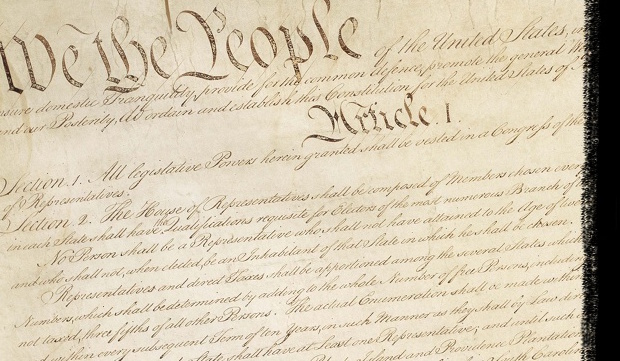 We the People of the United States, in
insure domestic Tranquility, provide for the common defence, promote the general
and our Posterity, do ordain and establish this Constitution for the United States of
Article. I.
Section. 1. All legislative Powers herein granted shall be vested in a Congress of the
of Representatives.
Section. 2. The House of Representatives shall be composed of Members chosen every
in each State shall have the Qualifications requisite for Electors of the most numerous Branch of
No Person shall be a Representative who shall not have attained to the Age of twen
and who shall not, when elected, be an Inhabitant of that State in which he shall be chosen.
Representatives and direct Taxes shall be apportioned among the several States which
Numbers, which shall be determined by adding to the whole Number of free Persons, including
not taxed, three fifths of all other Persons. The actual Enumeration shall be made within
within every subsequent Term of ten Years, in such Manner as they shall by Law
State shall have at Least one Representative; and until such
Island and Providence Plantations
North Carolina